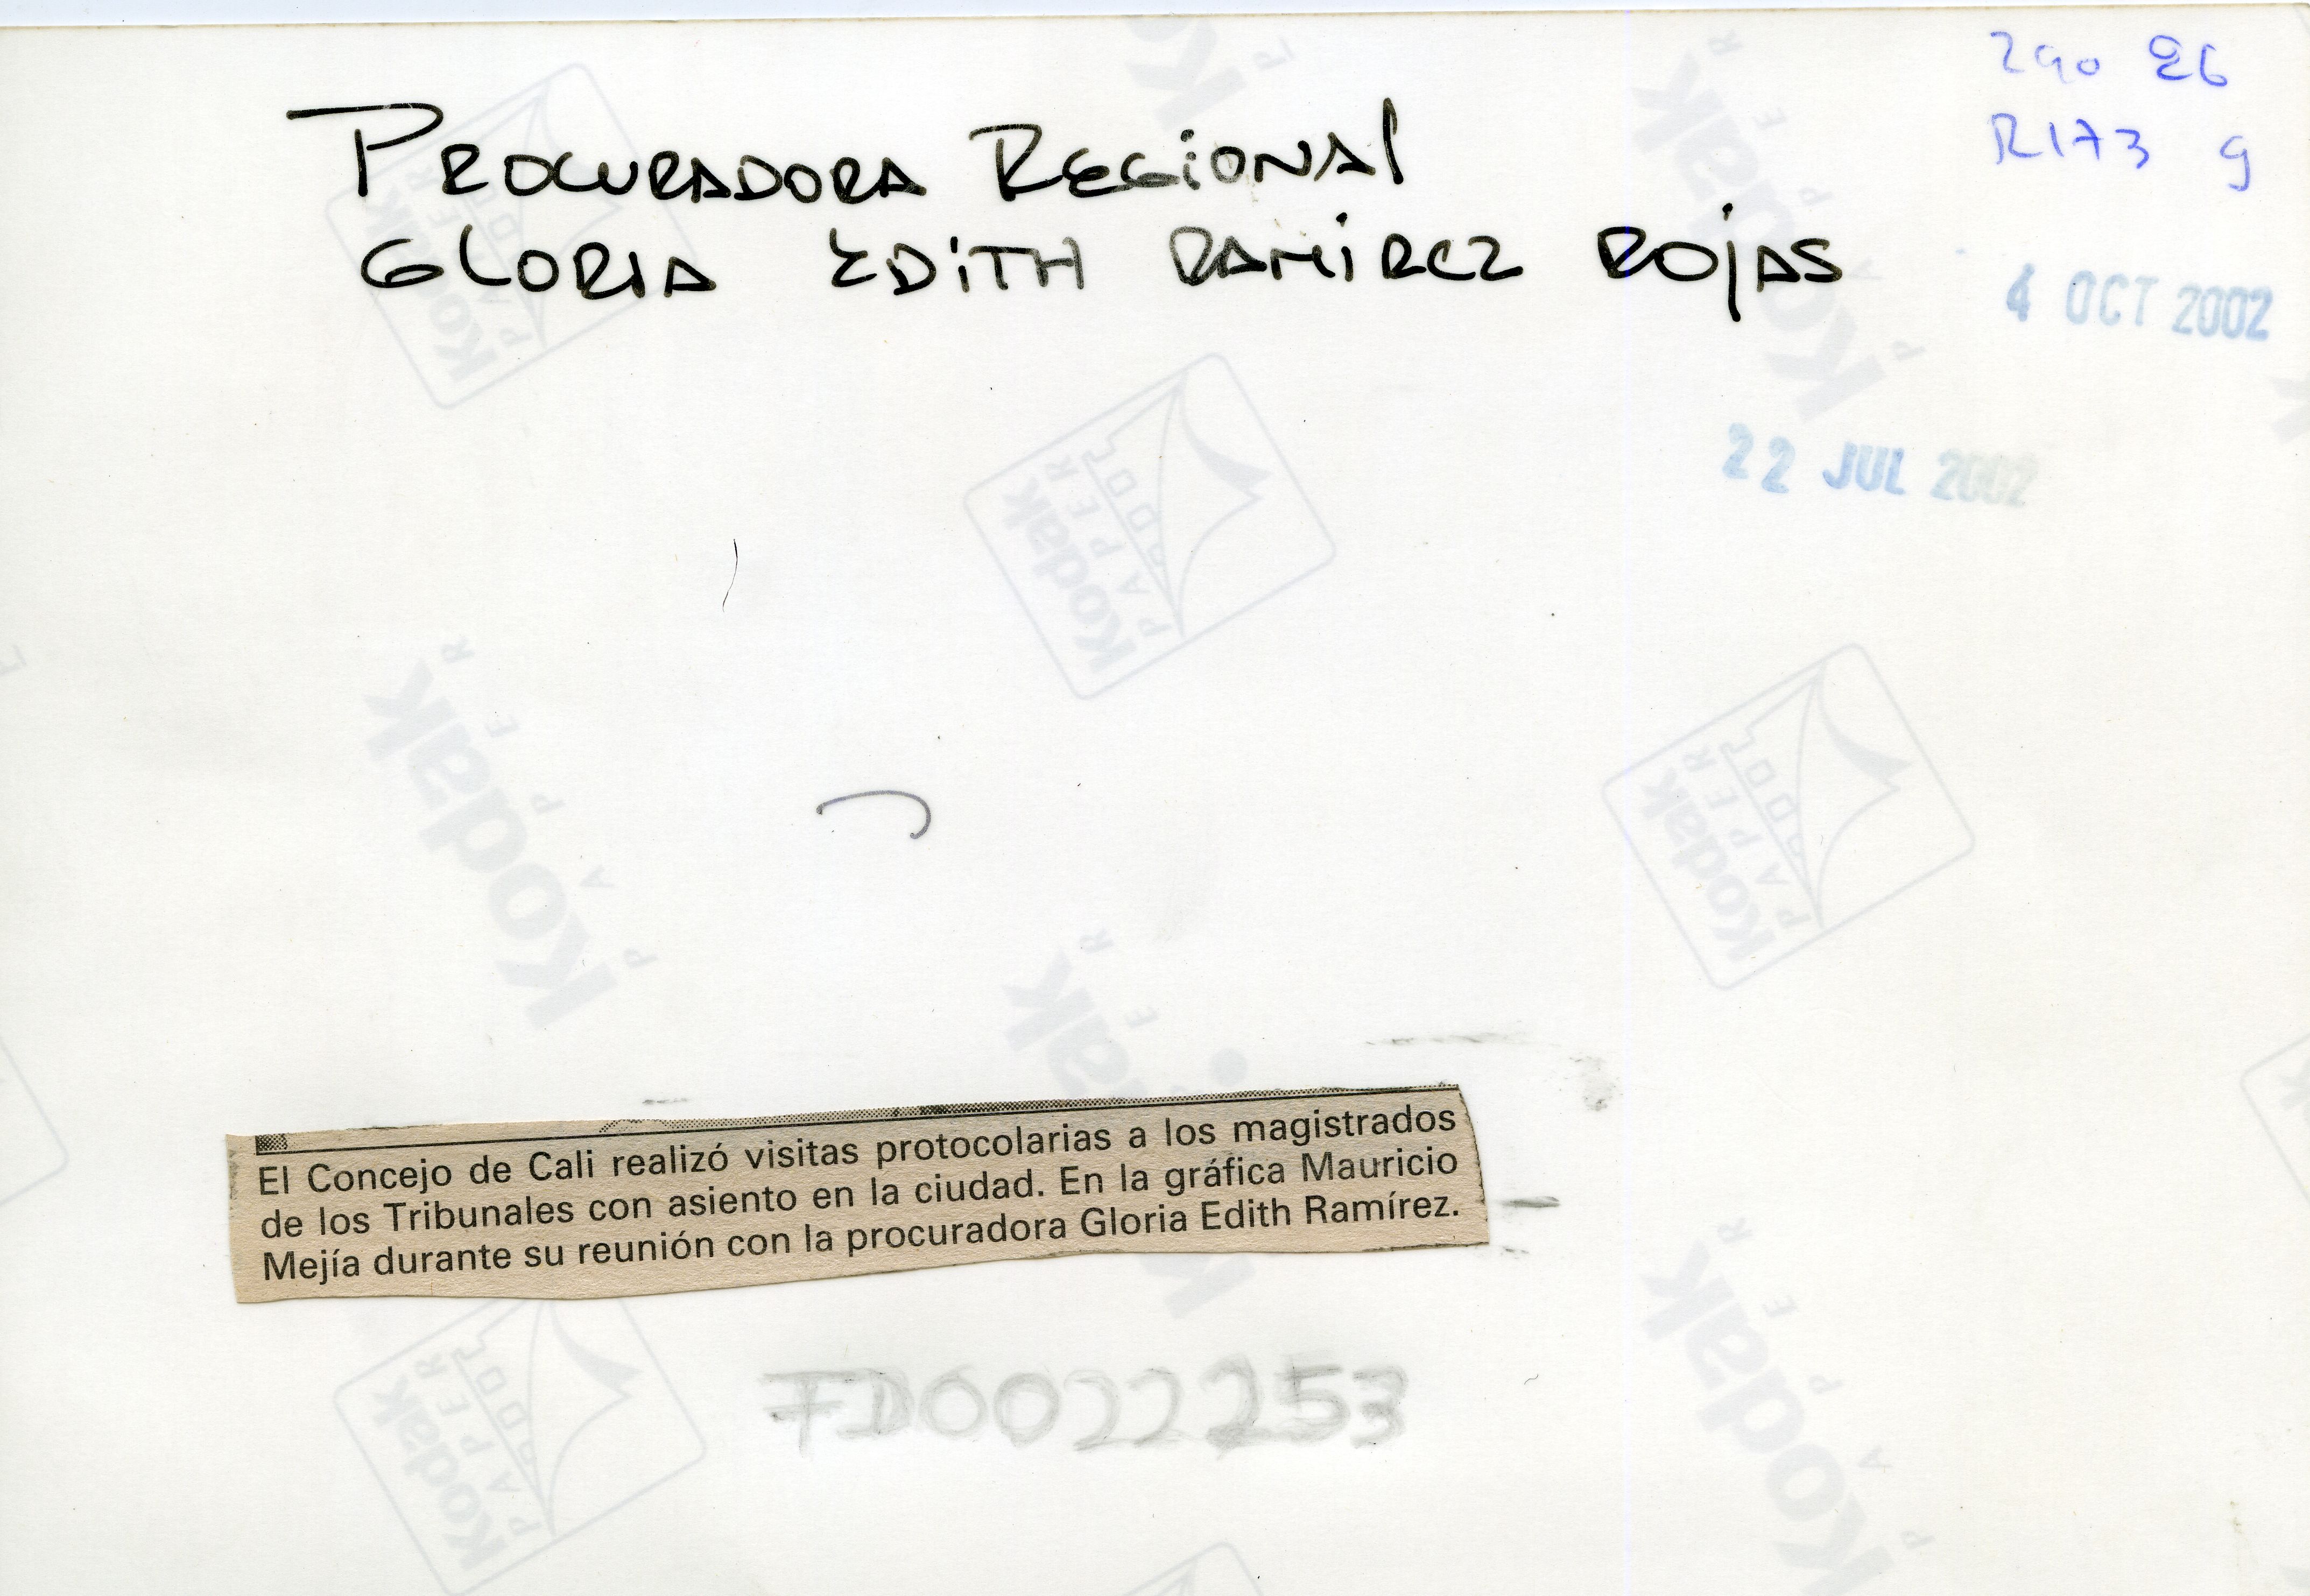 290 26
R173 g
PROCURADORA REGIONAL
GLORIA EDITH RAMIREZ ROJAS
4 OCT 2002
22 JUL 2002
El Concejo de Cali realizó visitas protocolarias a los magistrados
de los Tribunales con asiento en la ciudad. En la gráfica Mauricio
Mejía durante su reunión con la procuradora Gloria Edith Ramírez.
FD0022253
Kodak
PAPER